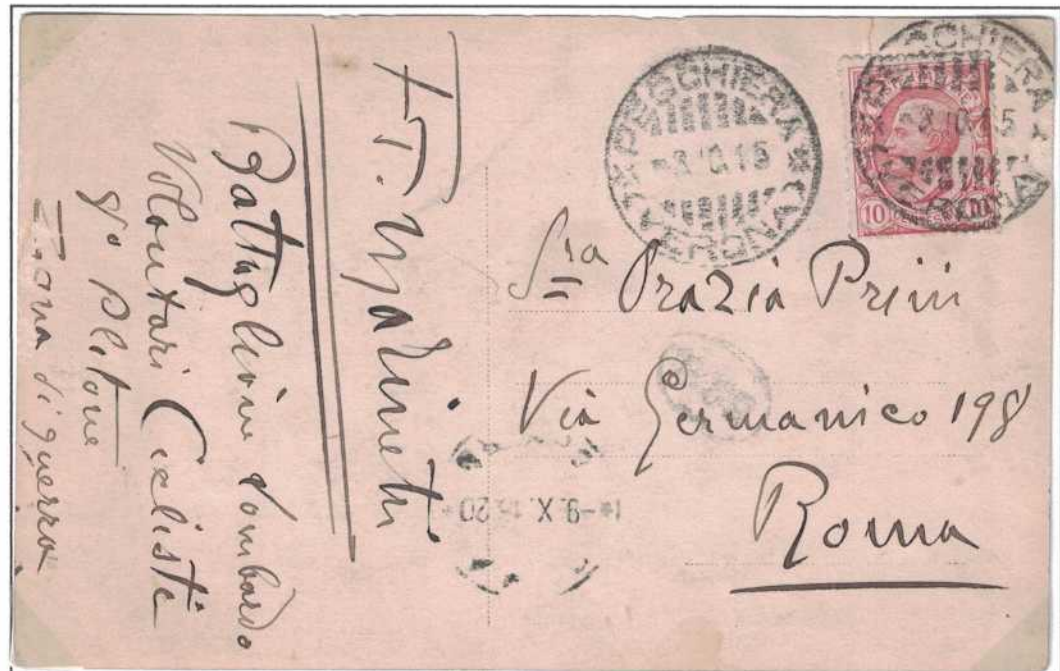 F. T. Marinetti
Battaglione Lombardo
Volontari Ciclisti
8º Plotone
Zona di guerra
PESCHIERA
8.10.15
(VERONA)
PESCHIERA
8.10.15
10
Sra Grazia Prini
Via Germanico 198
Roma
-9.X.15.20